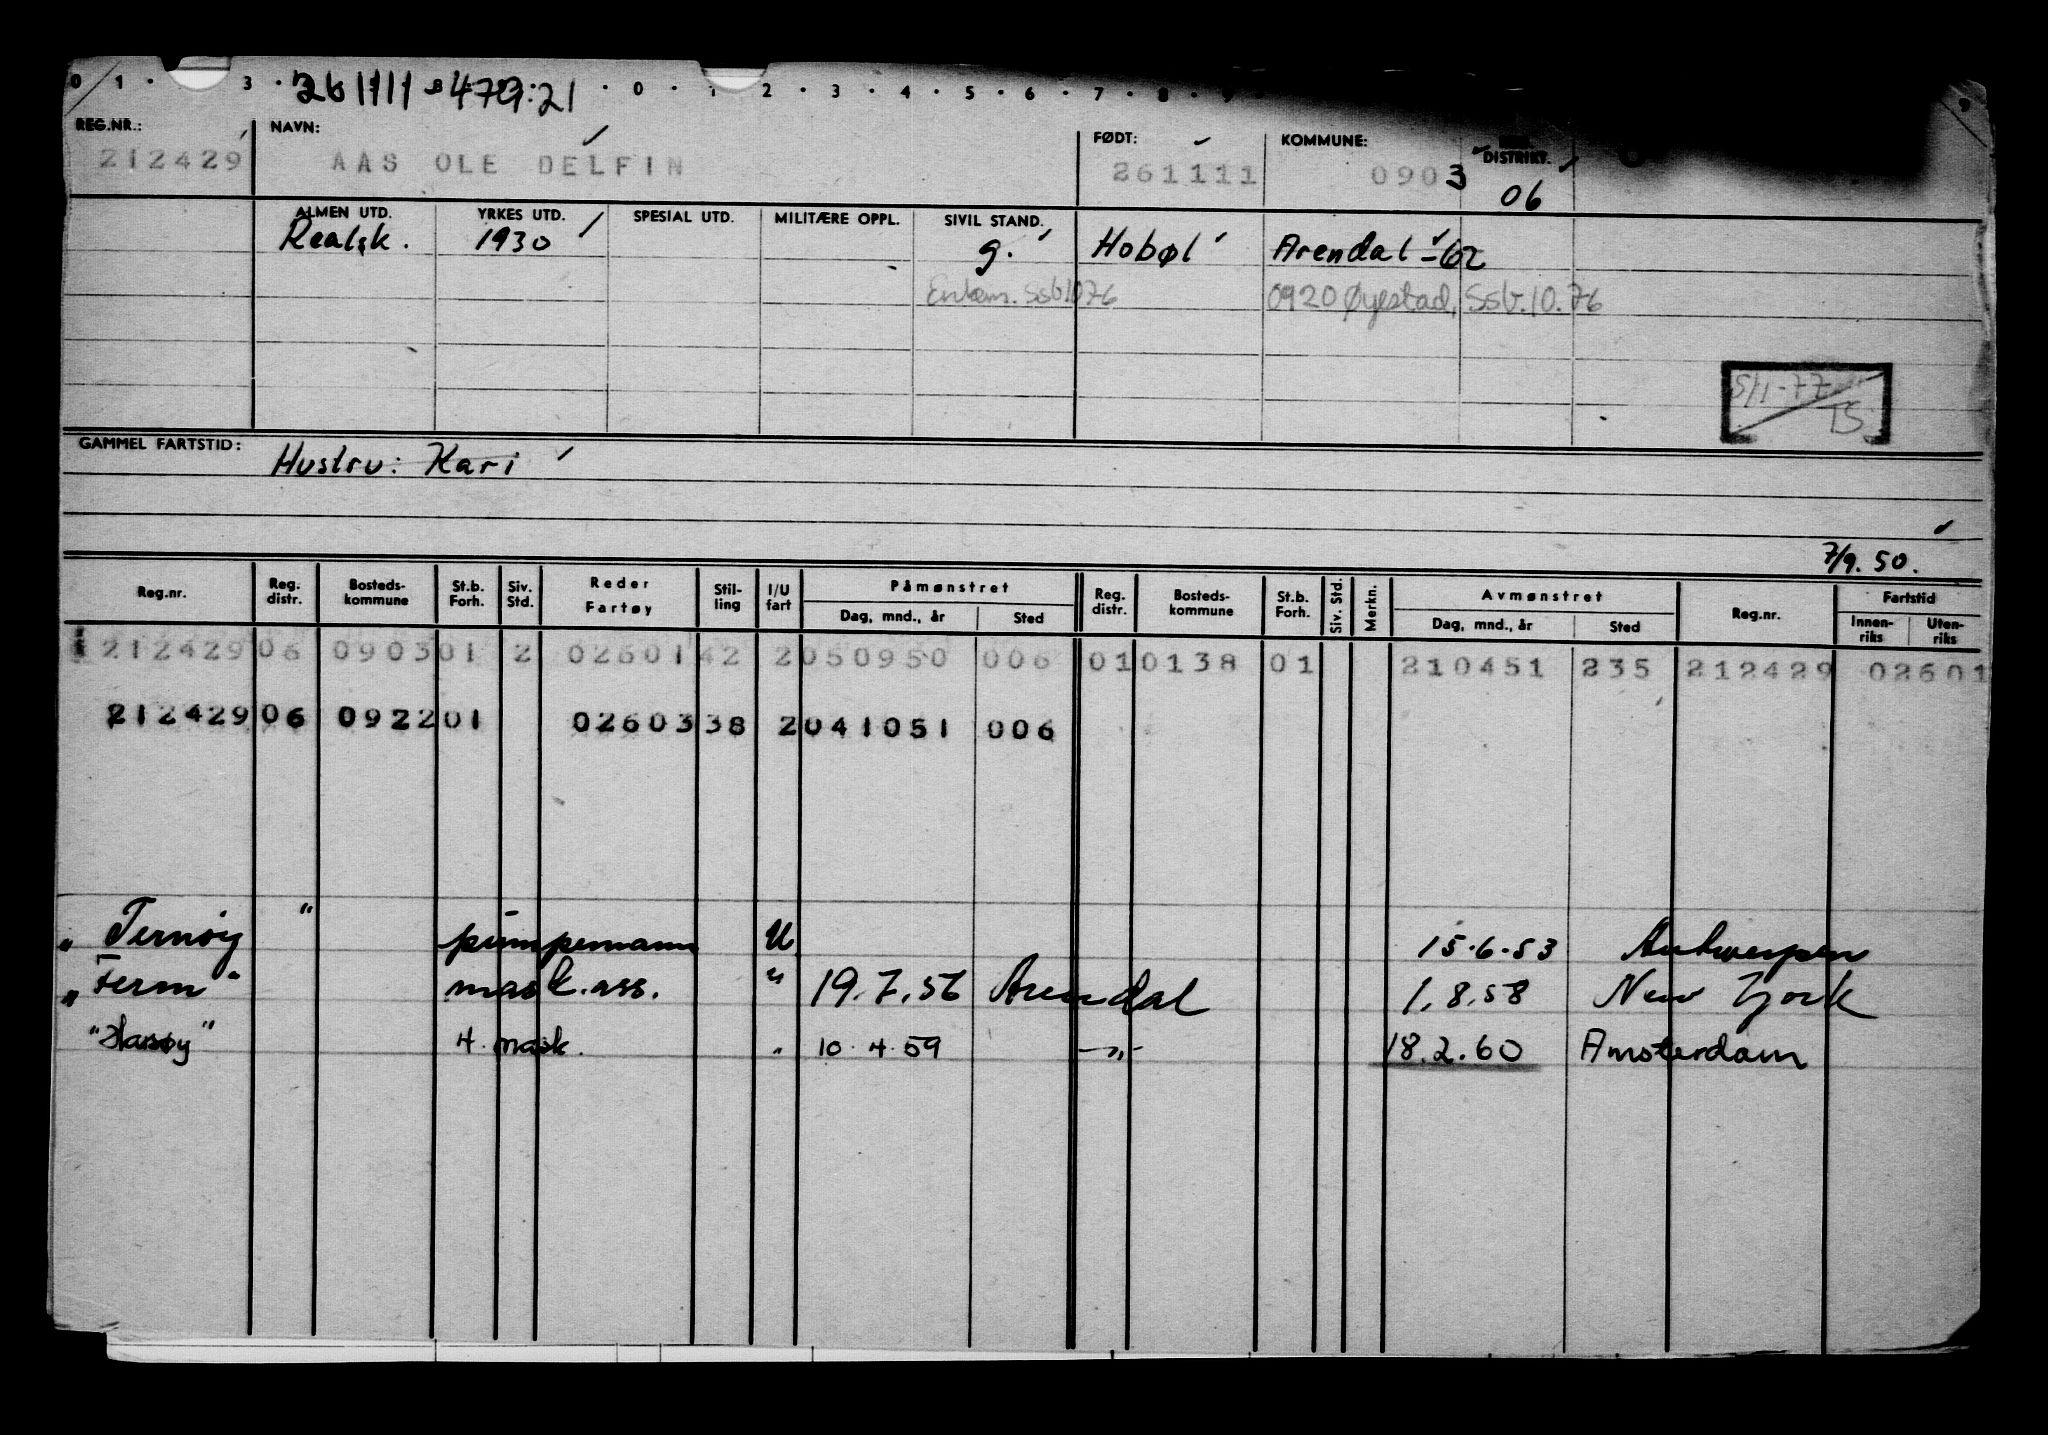 0 1 · 3 · 261111 479:21 · 0 · 1 · 2 · 3 · 4 · 5 · 6 · 7 · 8 · 9 9
REG.NR.: NAVN: FØDT: KOMMUNE: DISTRIKT.
212429 AAS OLE DELFIN 261111 0903 06
ALMEN UTD. YRKES UTD. SPESIAL UTD. MILITÆRE OPPL. SIVIL STAND.
Realsk. 1930 g. Hobøl Arendal -62
Enkem. Ssb 10 76 0920 Øyestad, Ssb. 10. 76
5/1-77
TS
GAMMEL FARTSTID: Hustru: Kari
7/9. 50.
Reg.nr. Reg. distr. Bosteds-kommune St.b. Forh. Siv. Std. Reder Fartøy Stil-ling I/U fart Påmønstret Dag, mnd., år Sted Reg. distr. Bosteds-kommune St.b. Forh. Siv. Std. Merkn. Avmønstret Dag, mnd., år Sted Reg.nr. Fartstid Innen-riks Uten-riks
212429 06 0903 01 2 02601 42 2 050950 006 01 0138 01 210451 235 212429 02601
212429 06 0922 01 02603 38 2 041051 006
„ Ternøy " pumpemann U 15.6.53 Antwerpen
„ Ferm " mask. ass. " 19.7.56 Arendal 1.8.58 New York
" Havøy " 4. mask. " 10.4.59 —„— 18.2.60 Amsterdam